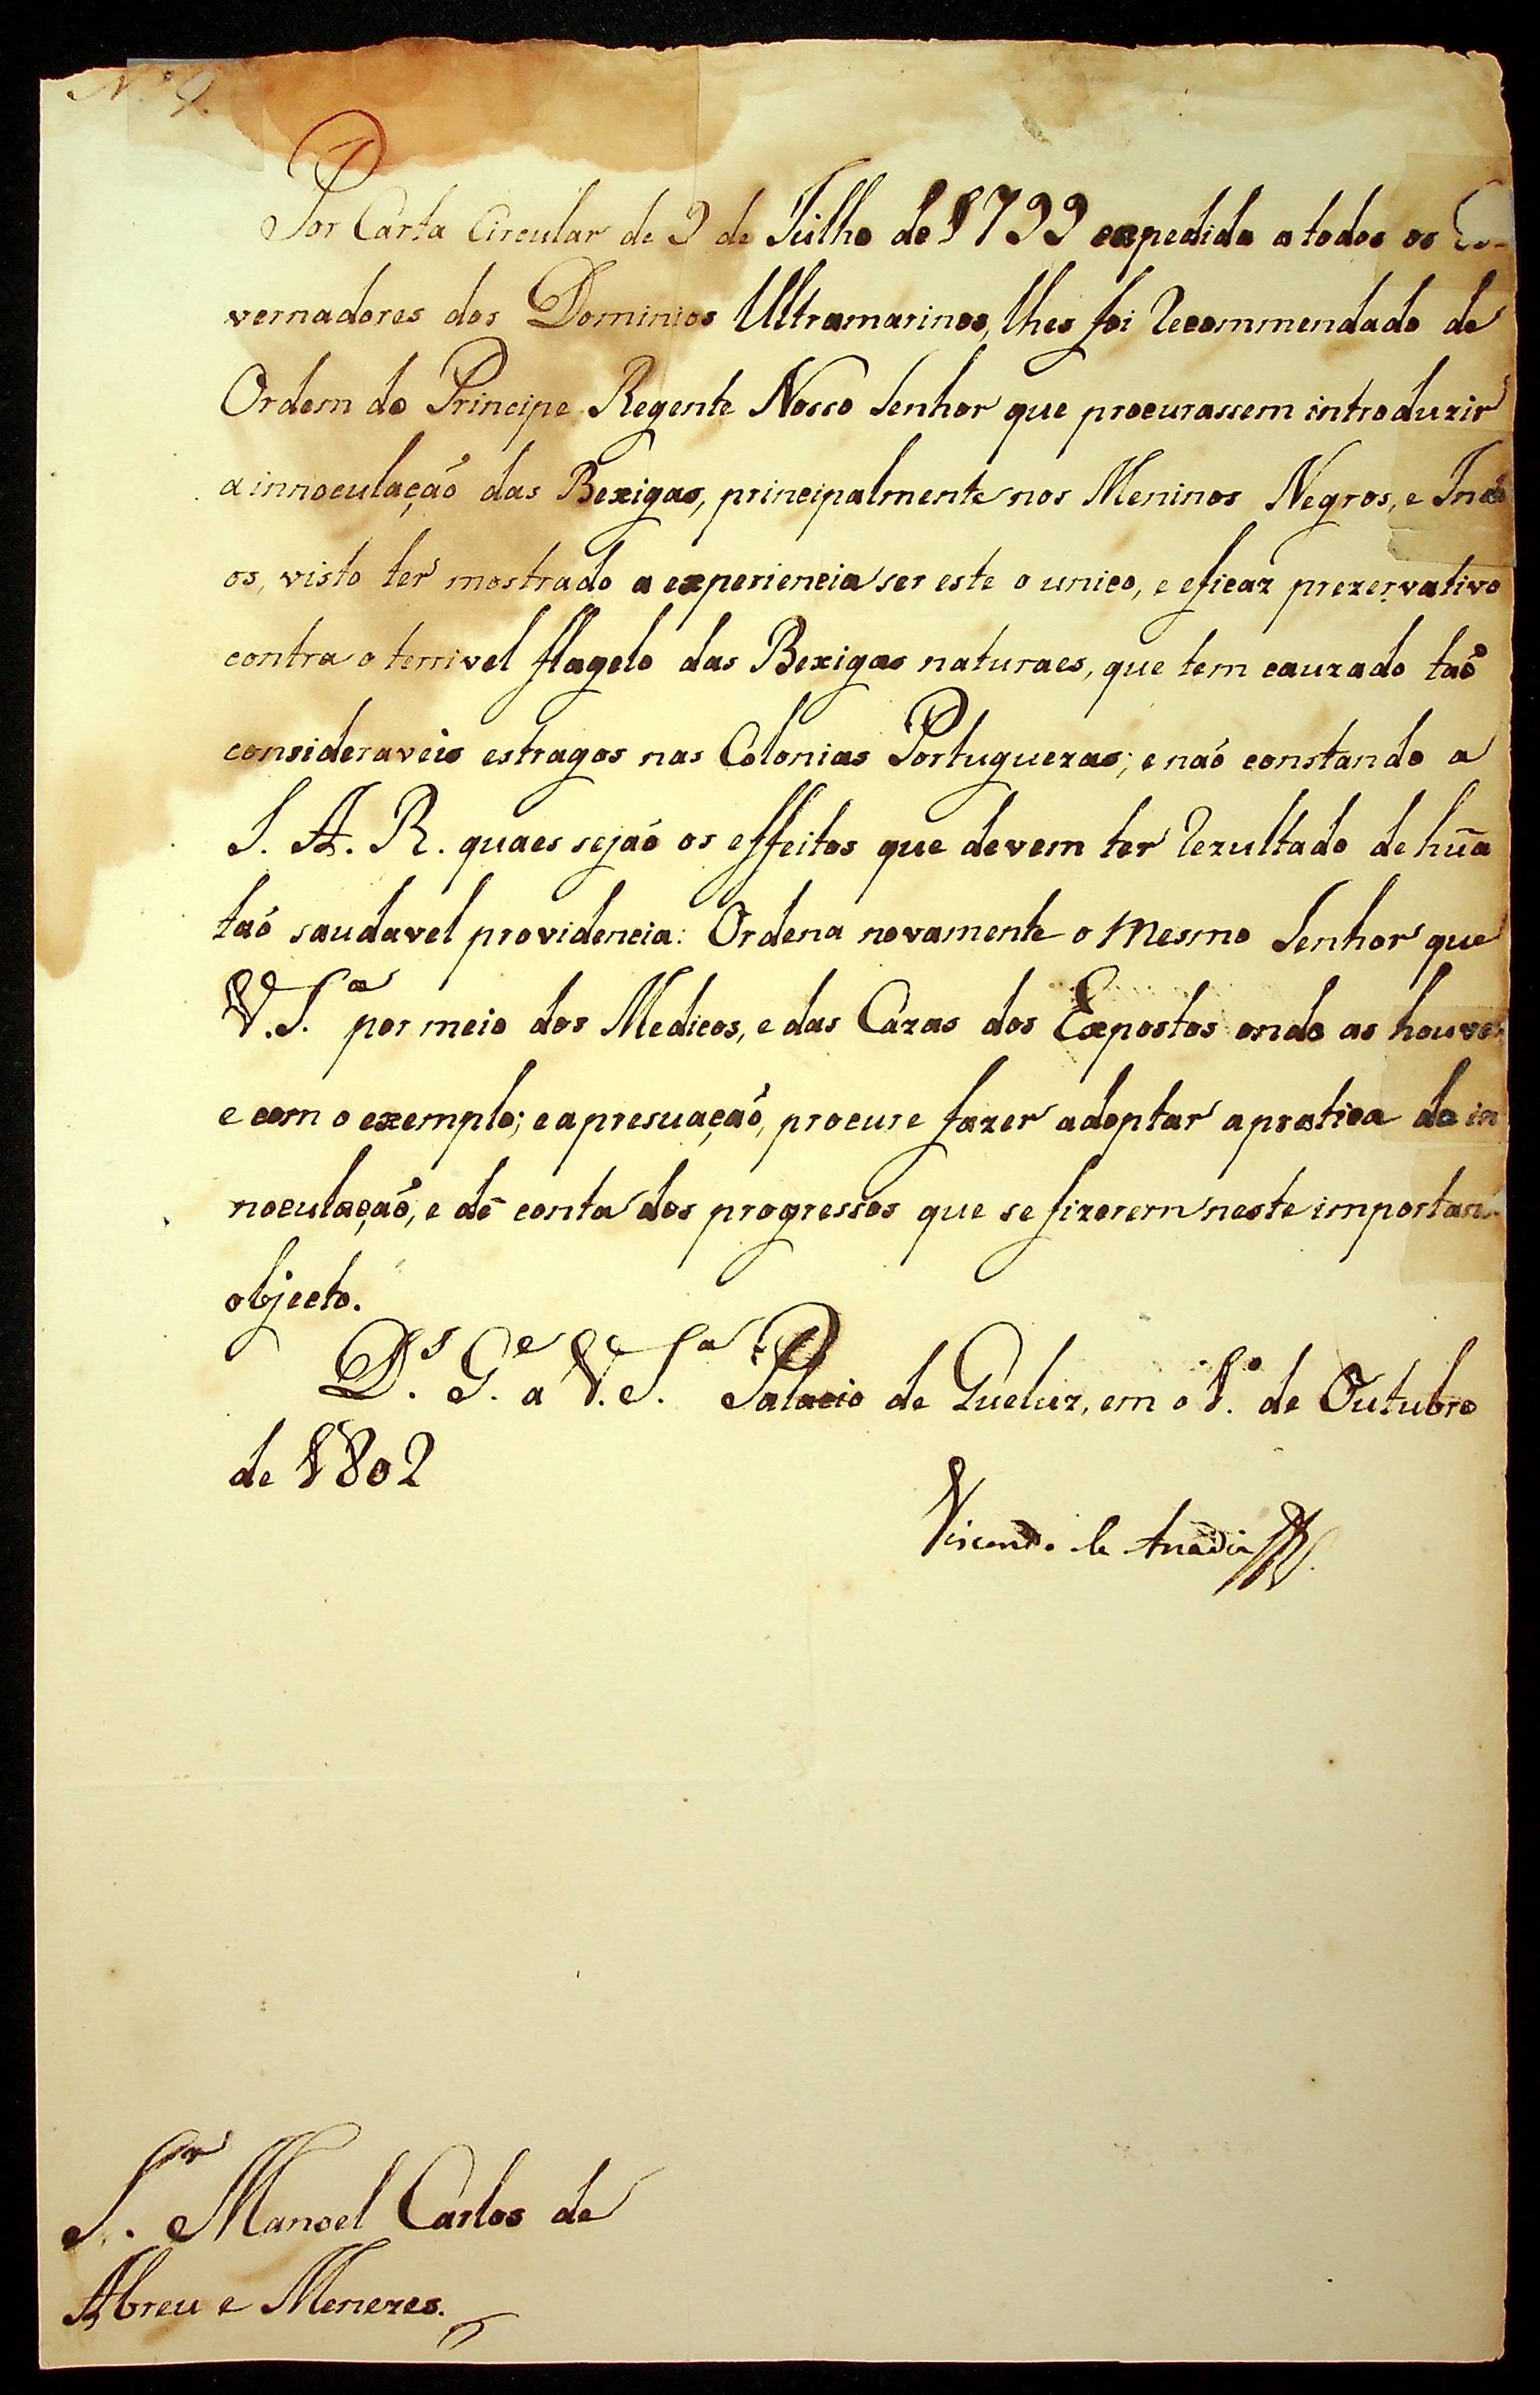 N.º 9.
Por Carta Circular de 9 de Julho de 1799 expedida a todos os Go-
vernadores dos Dominios Ultramarinos, lhes foi recommendado de
Ordem do Principe Regente Nosso Senhor que procurassem introduzir
a innoculação das Bexigas, principalmente nos Meninos Negros, e Indi
os, visto ter mostrado a experiencia ser este o unico, e eficaz prezervativo
contra o terrivel flagelo das Bexigas naturaes, que tem cauzado taõ
consideraveis estragos nas Colonias Portuguezas; e naõ constando a
S. A. R. quaes sejaõ os effeitos que devem ter rezultado de hũa
taõ saudavel providencia: Ordena novamente o mesmo Senhor que
V. S.ª por meio dos Medicos, e das Cazas dos Expostos onde as houver
e com o exemplo; e apresuaçaõ, procure fazer adoptar a pratica da in
noculaçaõ, e dê conta dos progressos que se fizerem neste importan
objecto.
D.s G.e a V. S.ª Palacio de Queluz, em o 1.º de Outubro
de 1802
Visconde de Anadia
S.r Manoel Carlos de
Abreu e Menezes.